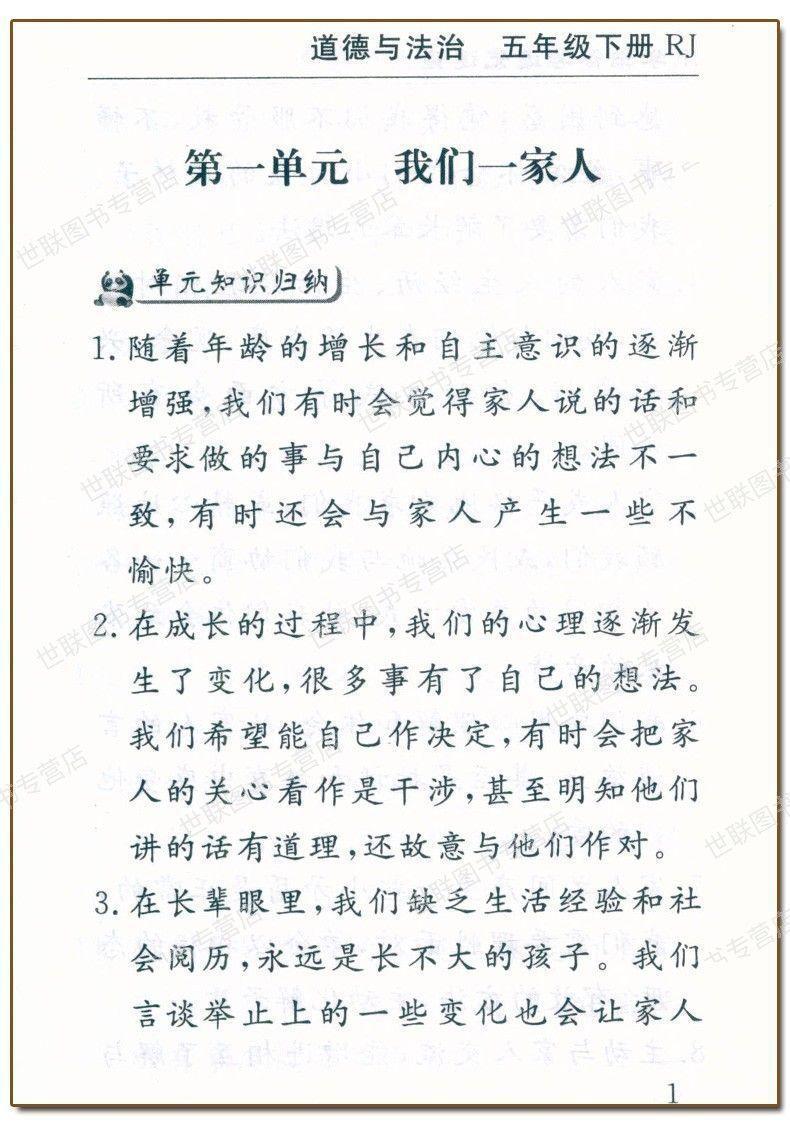 道德与法治 五年级下册 RJ
第一单元 我们一家人
单元知识归纳
1. 随着年龄的增长和自主意识的逐渐
增强，我们有时会觉得家人说的话和
要求做的事与自己内心的想法不一
致，有时还会与家人产生一些不
愉快。
2. 在成长的过程中，我们的心理逐渐发
生了变化，很多事有了自己的想法。
我们希望能自己作决定，有时会把家
人的关心看作是干涉，甚至明知他们
讲的话有道理，还故意与他们作对。
3. 在长辈眼里，我们缺乏生活经验和社
会阅历，永远是长不大的孩子。我们
言谈举止上的一些变化也会让家人
1
世联图书专营店